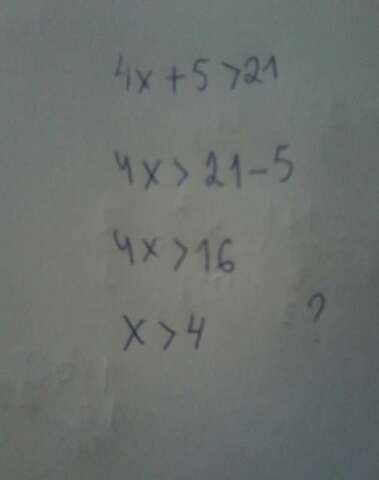 4x + 5 > 21
4x > 21 - 5
4x > 16
x > 4 ?